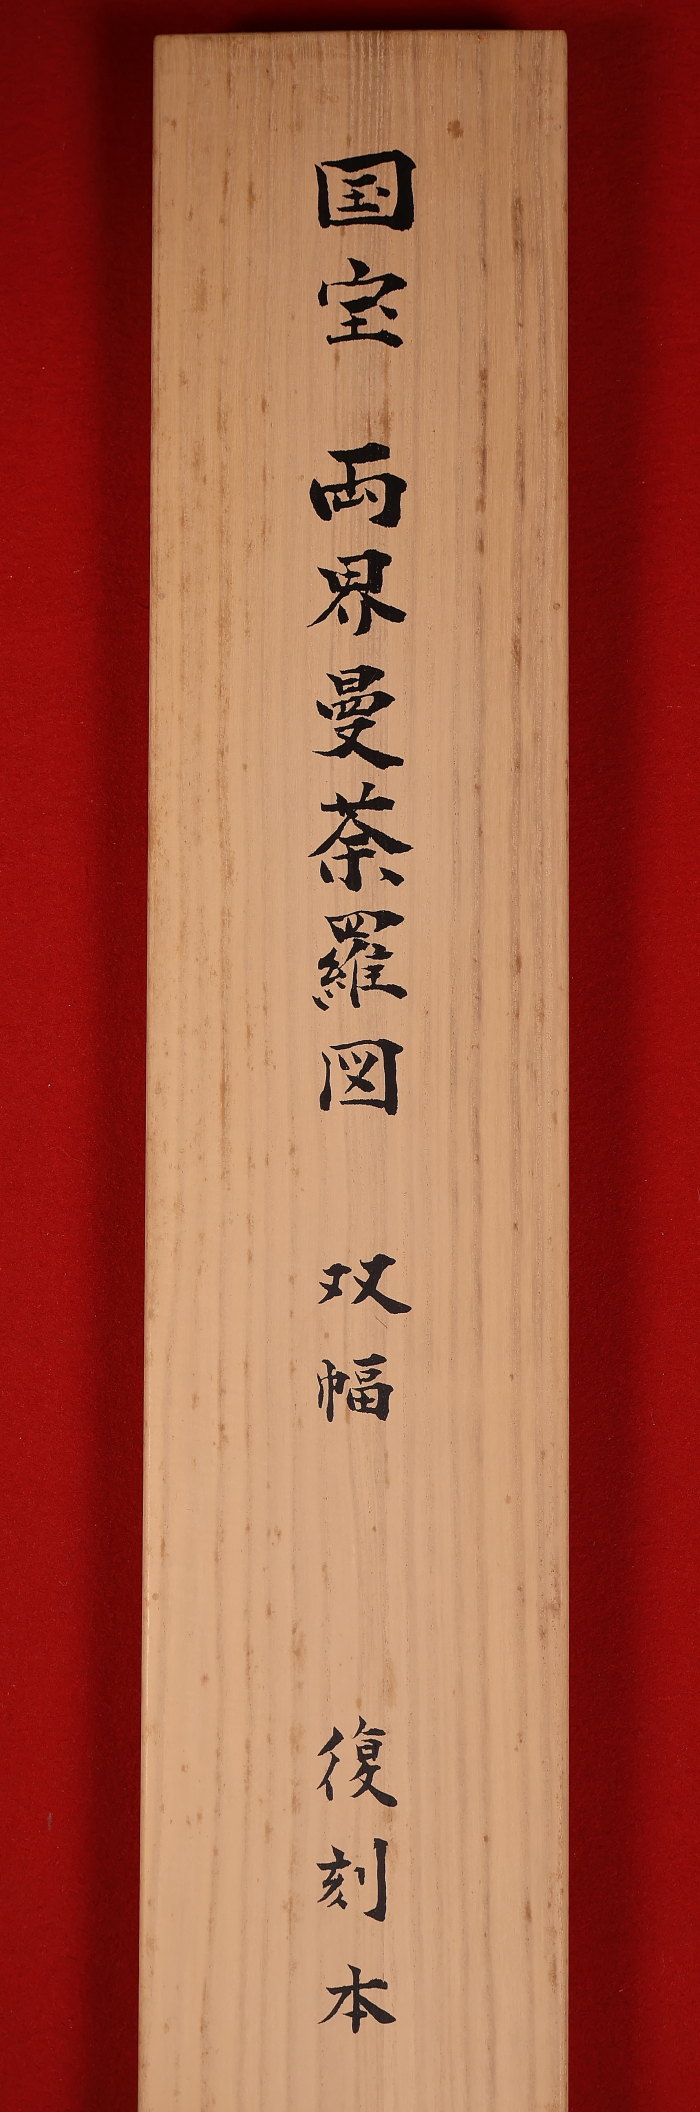 国宝 両界曼荼羅図 双幅 復刻本